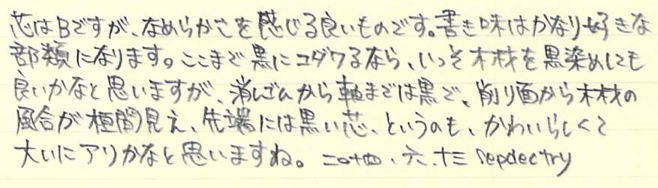 芯はBですが、なめらかさを感じる良いものです。書き味はかなり好きな
部類になります。ここまで黒にコダワるなら、いっそ木材を黒染めしても
良いかなと思いますが、消しゴムから軸までは黒で、削り面から木材の
風合が垣間見え、先端には黒い芯、というのも、かわいらしくて
大いにアリかなと思いますね。二〇十四、六、十三 sepdectry